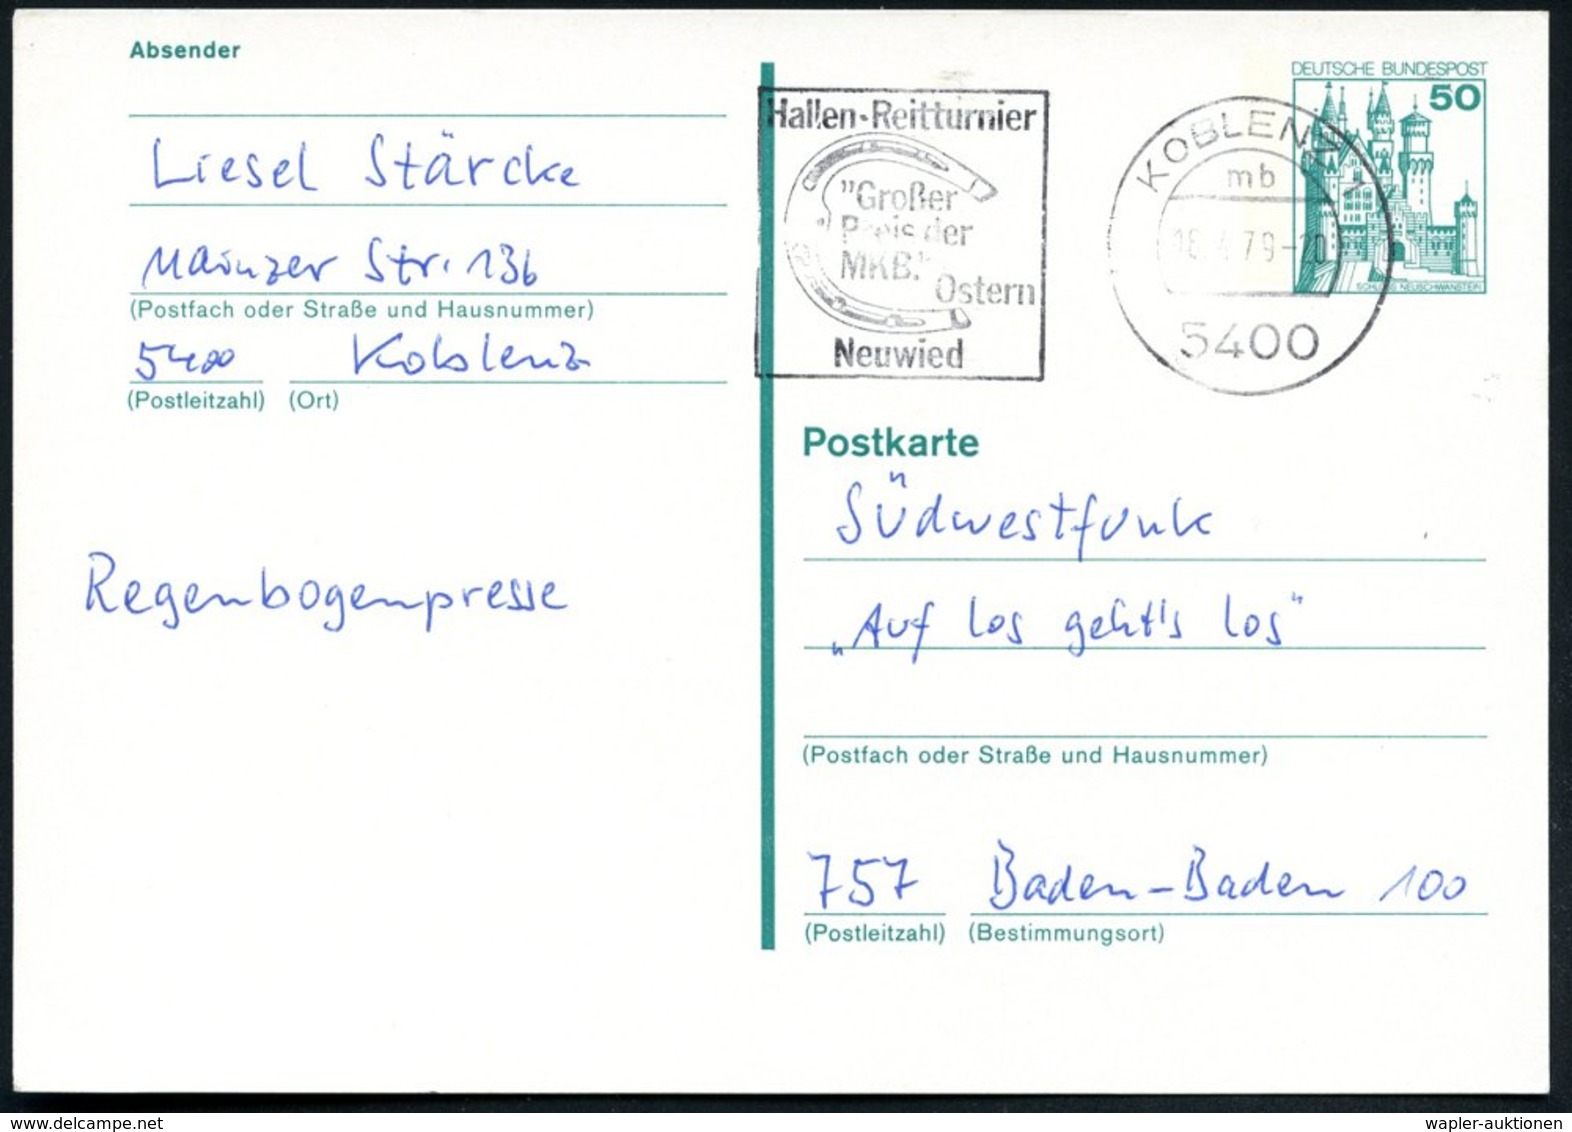 Absender
Liesel Stärcke
Mainzer Str. 136
(Postfach oder Straße und Hausnummer)
5400 Koblenz
(Postleitzahl) (Ort)
Regenbogenpresse
Hallen-Reitturnier
"Großer
Preis der
MKB."
Ostern
Neuwied
KOBLENZ 1
mb
79-20
5400
DEUTSCHE BUNDESPOST
50
SCHLOSS NEUSCHWANSTEIN
Postkarte
Südwestfunk
„Auf los geht's los"
(Postfach oder Straße und Hausnummer)
757 Baden-Baden 100
(Postleitzahl) (Bestimmungsort)
wapler-auktionen